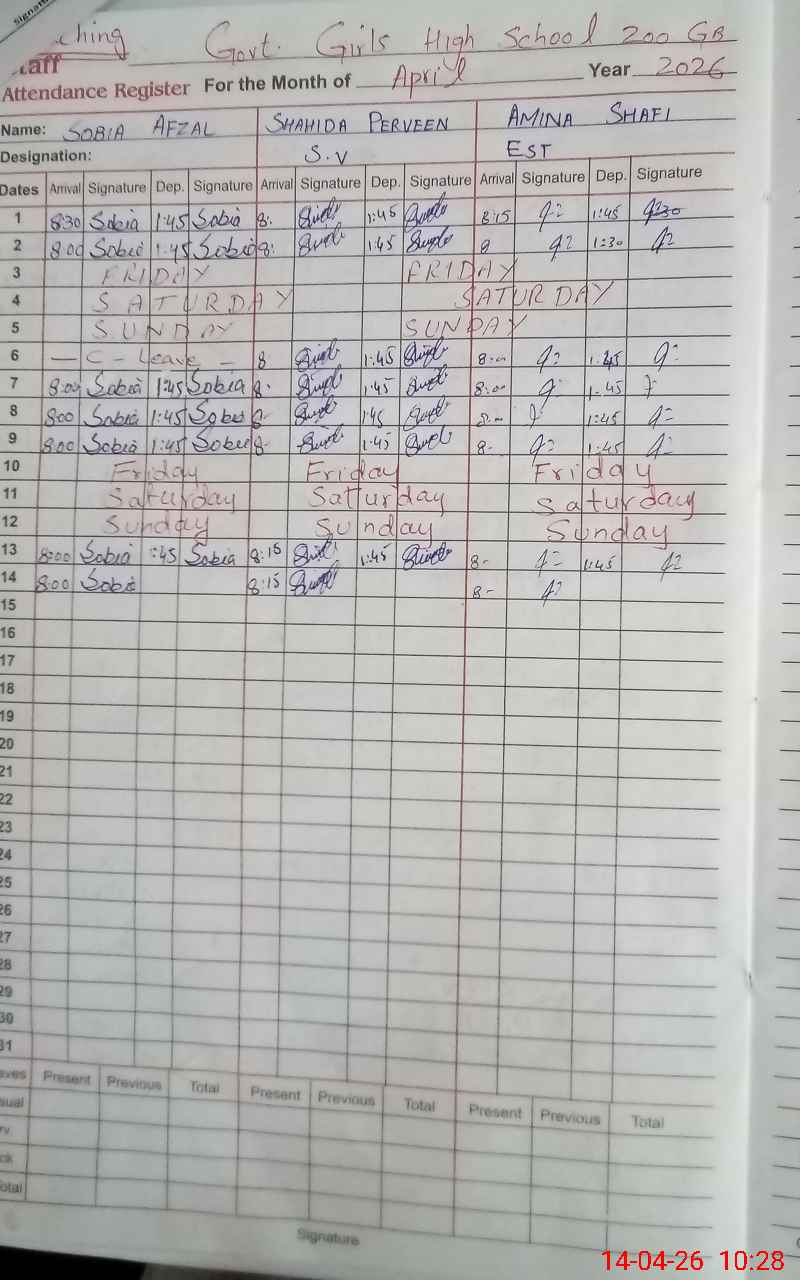 Signat
ching Govt. Girls High School 200 GB
taff
Attendance Register For the Month of April Year 2026
Name: SOBIA AFZAL SHAHIDA PERVEEN AMINA SHAFI
Designation: S.V EST
Dates Arrival Signature Dep. Signature Arrival Signature Dep. Signature Arrival Signature Dep. Signature
1 8:30 Sobia 1:45 Sobia 8: 1:45 8:15 1:45
2 8:00 Sobia 1:45 Sobia 8: 1:45 8 1:30
3 FRIDAY FRIDAY
4 SATURDAY SATURDAY
5 SUNDAY SUNDAY
6 — C - Leave - 8 1:45 8:- 1:45
7 8:00 Sobia 1:45 Sobia 8: 1:45 8:00 1:45
8 8:00 Sobia 1:45 Sobia 8- 145 8:- 1:45
9 8:00 Sobia 1:45 Sobia 8- 1:45 8- 1:45
10 Friday Friday Friday
11 Saturday Saturday Saturday
12 Sunday Sunday Sunday
13 8:00 Sobia :45 Sobia 8:15 1:45 8- 1:45
14 8:00 Sobia 8:15 8-
15
16
17
18
19
20
21
22
23
24
25
26
27
28
29
30
31
aves Present Previous Total Present Previous Total Present Previous Total
sual
rv.
ck
otal
Signature
14-04-26 10:28